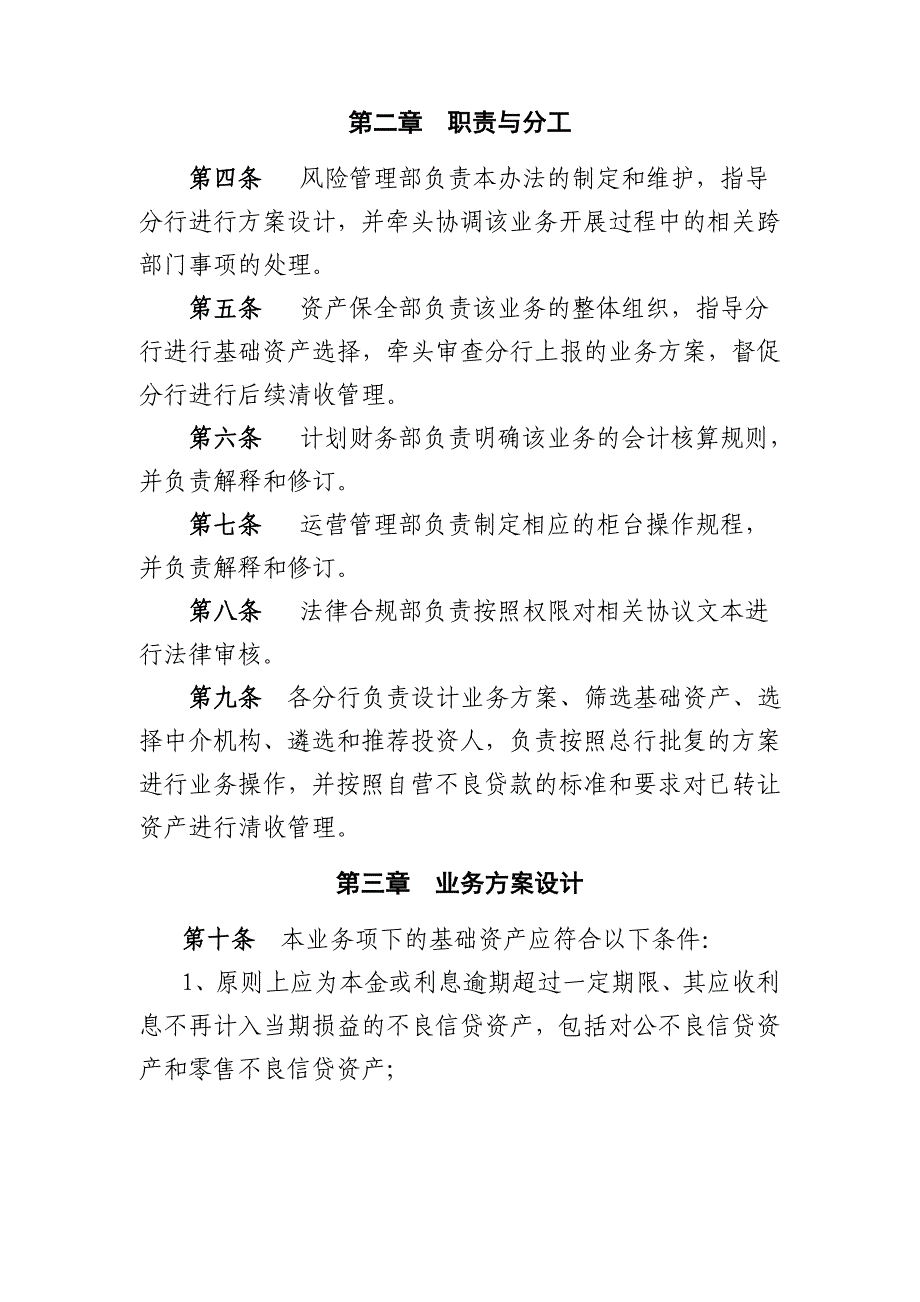 第二章　职责与分工
第四条　风险管理部负责本办法的制定和维护，指导
分行进行方案设计，并牵头协调该业务开展过程中的相关跨
部门事项的处理。
第五条　资产保全部负责该业务的整体组织，指导分
行进行基础资产选择，牵头审查分行上报的业务方案，督促
分行进行后续清收管理。
第六条　计划财务部负责明确该业务的会计核算规则，
并负责解释和修订。
第七条　运营管理部负责制定相应的柜台操作规程，
并负责解释和修订。
第八条　法律合规部负责按照权限对相关协议文本进
行法律审核。
第九条　各分行负责设计业务方案、筛选基础资产、选
择中介机构、遴选和推荐投资人，负责按照总行批复的方案
进行业务操作，并按照自营不良贷款的标准和要求对已转让
资产进行清收管理。
第三章　业务方案设计
第十条　本业务项下的基础资产应符合以下条件：
1、原则上应为本金或利息逾期超过一定期限、其应收利
息不再计入当期损益的不良信贷资产，包括对公不良信贷资
产和零售不良信贷资产；